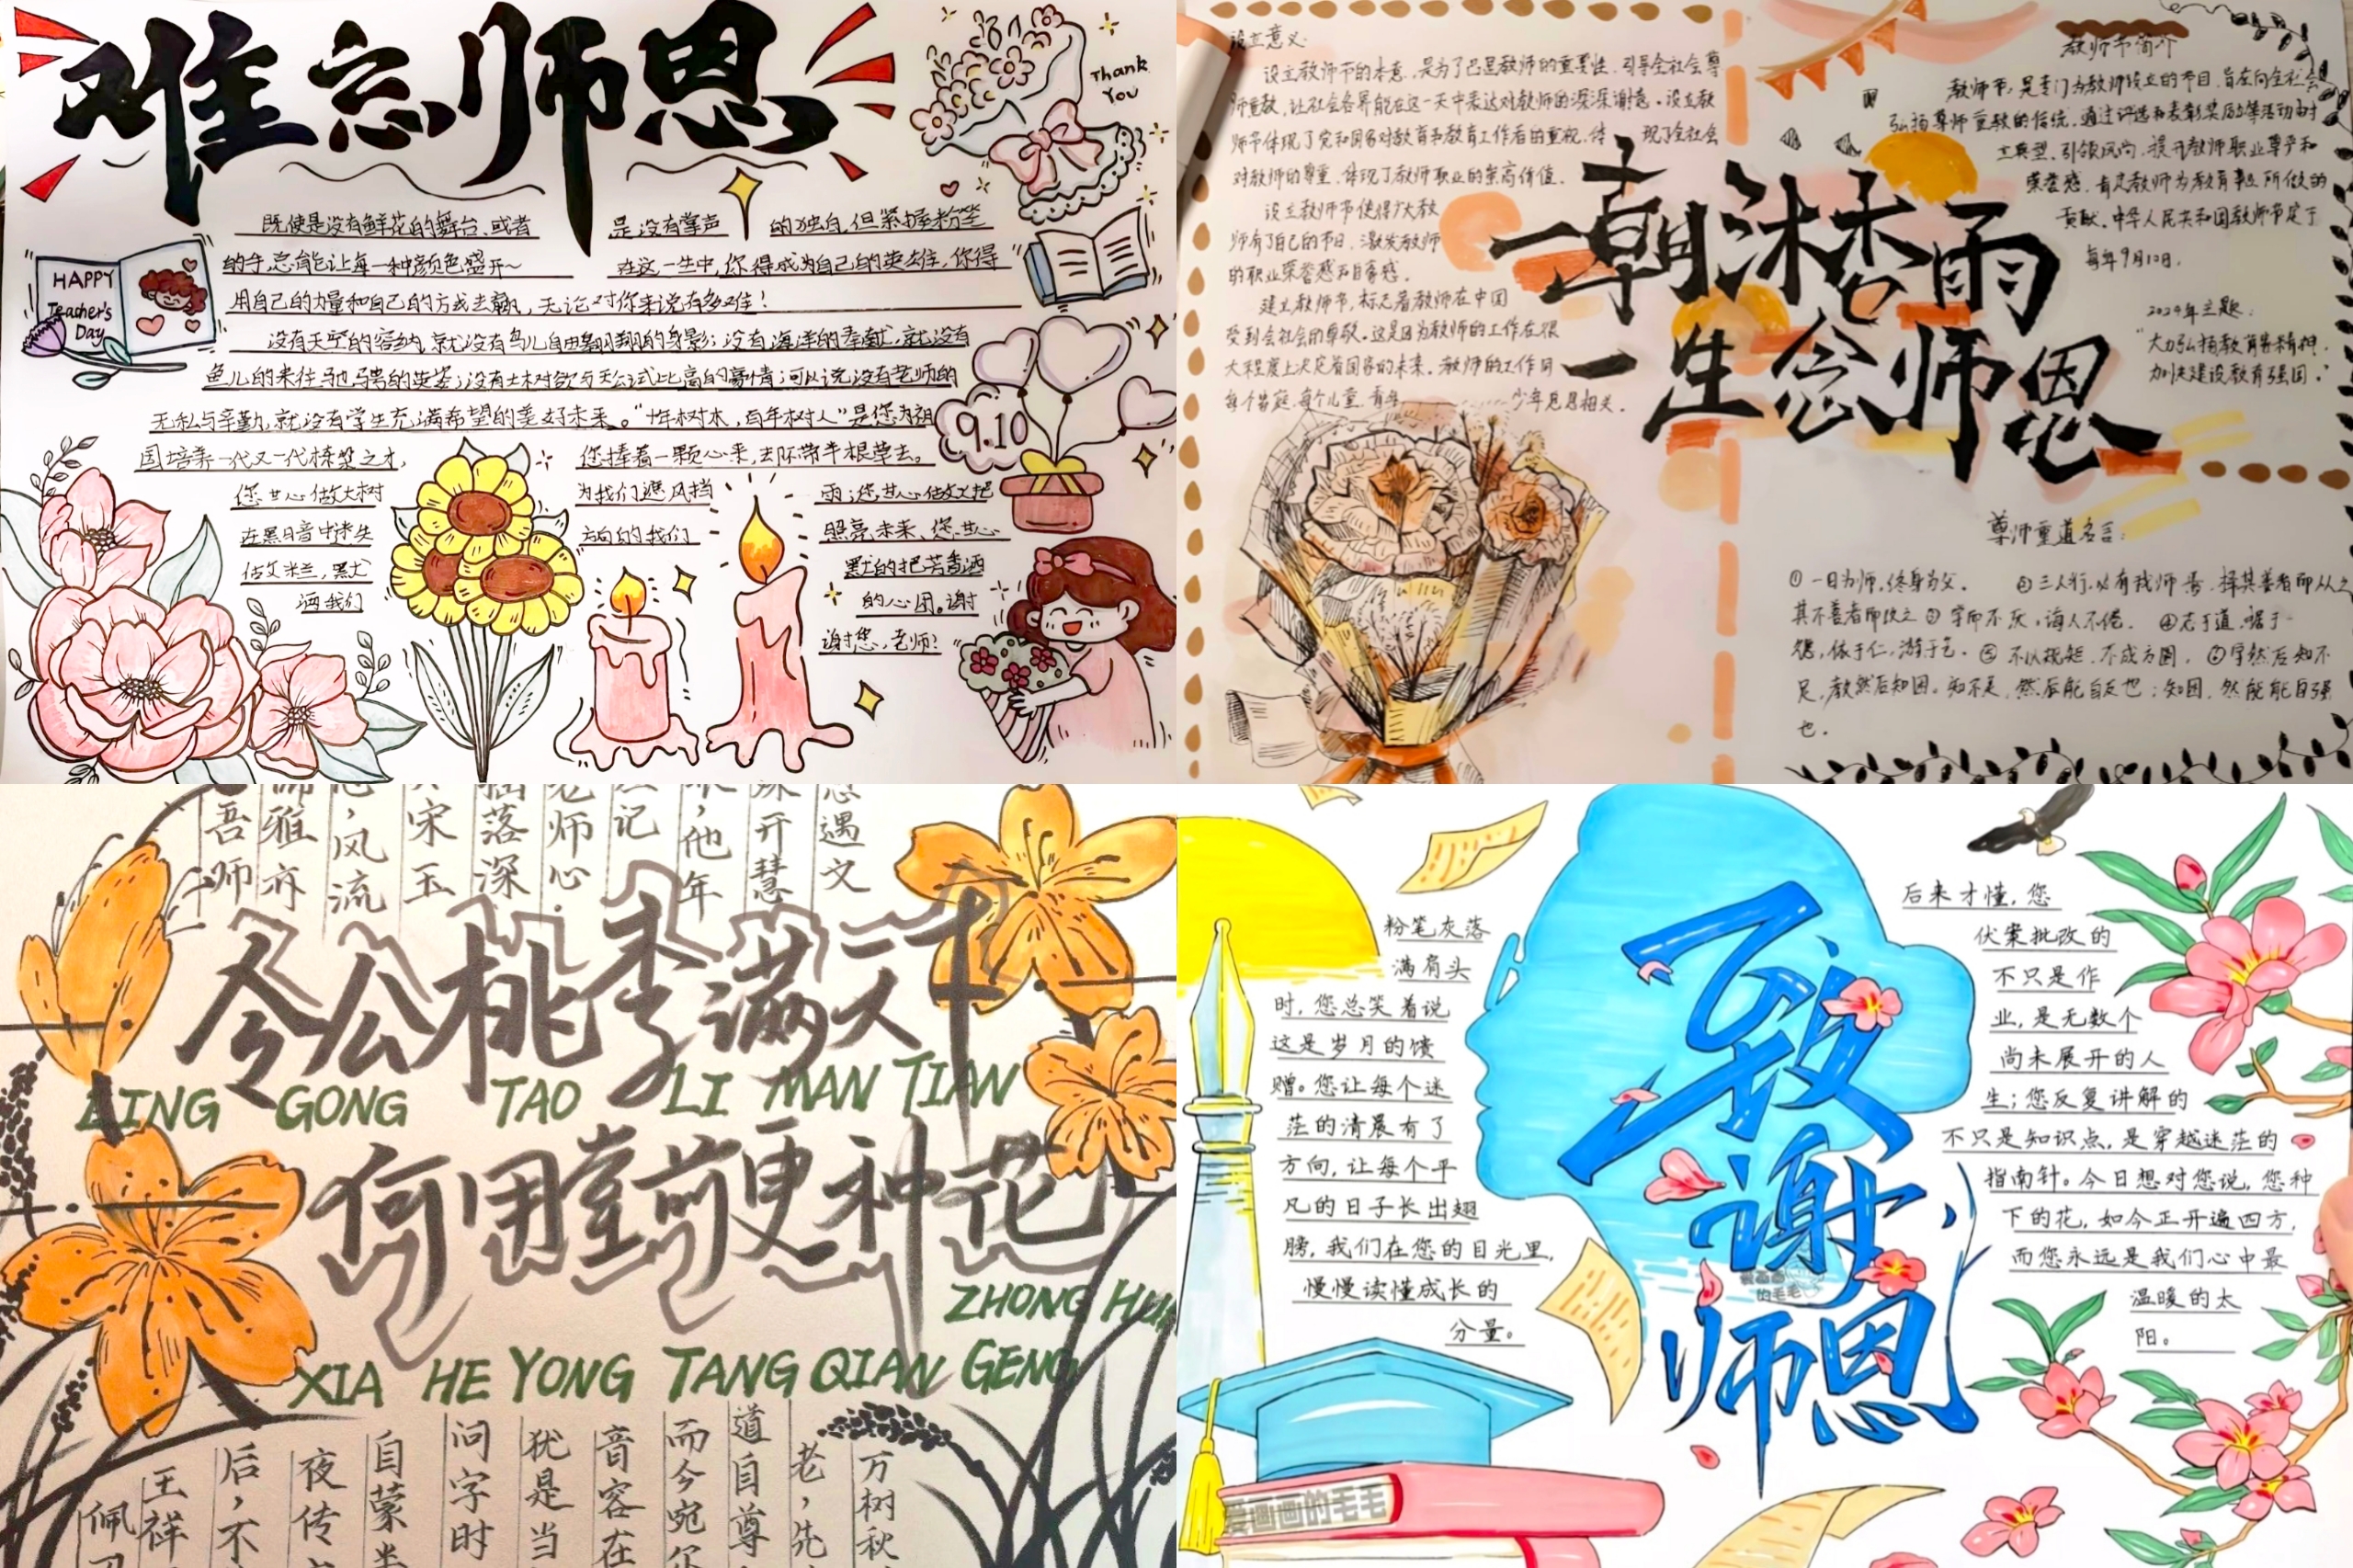 难忘师恩
Thank
You
HAPPY
Teacher's
Day
既使是没有鲜花的舞台,或者是没有掌声的独白,但紧握粉笔
的手,总能让每一种颜色盛开~ 在这一生中,你得成为自己的英雄,你得
用自己的力量和自己的方式去翱,无论对你来说有多难!
没有天空的容纳,就没有鸟儿自由翱翔的身影;没有海洋的奉献,就没有
鱼儿的来往驰骋的英姿;没有土树欲与天公试比高的豪情;可以说没有老师的
无私与辛勤,就没有学生充满希望的美好未来。“十年树木,百年树人”是您为祖
国培养一代又一代栋梁之才,您捧着一颗心来,去不带半根草去。
您甘心做大树为我们遮风挡雨;您甘心做火把
在黑暗中迷失方向的我们照亮未来,您甘心
做米兰,默默的把芳香洒
洒我们的心田。谢
谢您,老师!
9.10
设立意义
设立教师节的本意,是为了凸显教师的重要性,引导全社会尊
师重教,让社会各界能在这一天中表达对教师的深深谢意。设立教
师节体现了党和国家对教育和教育工作者的重视,体现了全社会
对教师的尊重,体现了教师职业的崇高价值。
设立教师节使得广大教
师有了自己的节日,激发教师
的职业荣誉感和自豪感。
建立教师节,标志着教师在中国
受到全社会的尊敬。这是因为教师的工作在很
大程度上决定着国家的未来。教师的工作同
每个家庭,每个儿童,青年少年息息相关。
一朝沐杏雨
一生念师恩
教师节简介
教师节,是专门为教师设立的节日,旨在向全社会
弘扬尊师重教的传统,通过评选和表彰奖励等活动树
立典型,引领风尚,提升教师职业尊严和
荣誉感,肯定教师为教育事业所做的
贡献。中华人民共和国教师节定于
每年9月10日。
2024年主题:
“大力弘扬教育家精神,
加快建设教育强国。”
尊师重道名言:
① 一日为师,终身为父。 ② 三人行,必有我师焉,择其善者而从之
其不善者而改之 ③ 学而不厌,诲人不倦。 ④ 志于道,据于
德,依于仁,游于艺。 ⑤ 不以规矩,不成方圆。 ⑥ 学然后知不
足,教然后知困。知不足,然后能自反也;知困,然后能自强
也。
遇文
开慧
他年
记
老师心
落深
宋玉
,风流
雅亦
吾师
令公桃李满天下
LING GONG TAO LI MAN TIAN
XIA
何用堂前更种花
HE YONG TANG QIAN GENG
ZHONG HUA
万树秋
老,先
道自尊
而今宛
音容在
犹是当
问字时
自蒙半
夜传
后,不
王祥
佩
粉笔灰落
满肩头
时,您总笑着说
这是岁月的馈
赠。您让每个迷
茫的清晨有了
方向,让每个平
凡的日子长出翅
膀,我们在您的目光里,
慢慢读懂成长的
分量。
致谢师恩
爱画画的毛毛
后来才懂,您
伏案批改的
不只是作
业,是无数个
尚未展开的人
生;您反复讲解的
不只是知识点,是穿越迷茫的
指南针。今日想对您说,您种
下的花,如今正开遍四方,
而您永远是我们心中最
温暖的太
阳。
爱画画的毛毛